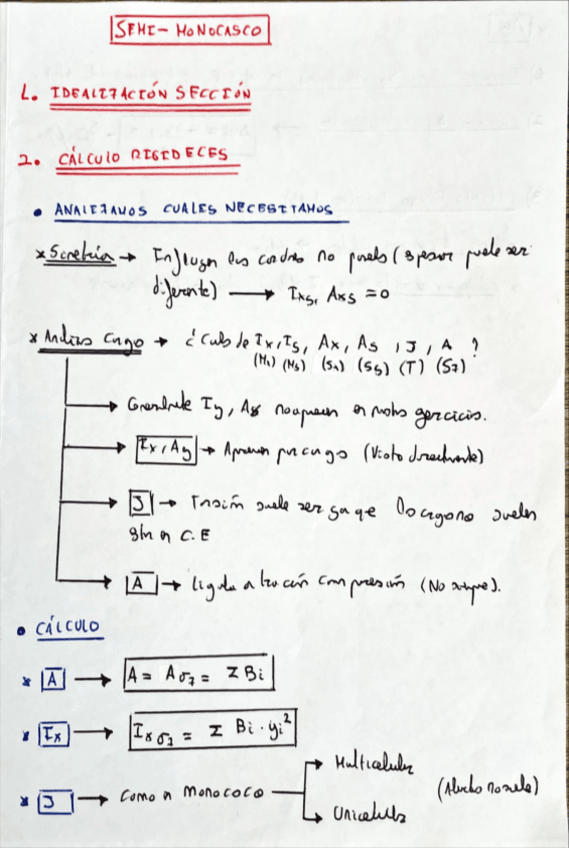 SEMI-MONOCASCO
1. IDEALIZACIÓN SECCIÓN
2. CÁLCULO RIGIDECES
• ANALIZAMOS CUALES NECESITAMOS
* Simetría → Influyen los cordones no paneles (espesor puede ser
diferente) → Ixs, Axs = 0
* Análisis Cargo → ¿Cuáls de Ix, Is, Ax, As, J, A ?
(M1) (Ms) (Sx) (Ss) (T) (Sz)
→ Iy, Ax no aparecen en ejercicios.
→ Ix, Ay → Aparecen por cargo (Visto directamente)
→ J → Torsión suele ser ya que la cargo no suelen
en C.E
→ A → Ligada a tracción compresión (No siempre).
• CÁLCULO
* A → A = Aσz = Σ Bi
* Ix → Ixσz = Σ Bi · yi²
* J → Como n monococo → Multicelular
→ Unicelular